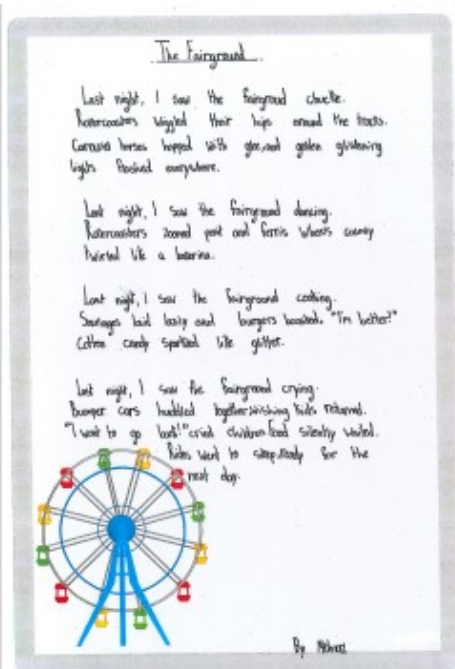 The Fairground
Last night, I saw the fairground
Rollercoasters wiggled their hips around the tracks.
Carousel horses hopped with glee, and golden glistening
lights flashed everywhere.
Last night, I saw the fairground dancing.
Rollercoasters zoomed past and ferris wheels
twirled like a ballerina.
Last night, I saw the fairground cooking.
Sausages laid lazily and burgers boasted, "I'm better!"
Cotton candy sparkled like glitter.
Last night, I saw the fairground crying.
Bumper cars huddled together, wishing kids returned.
"I want to go back!" cried children. Food silently waited.
Rides went to sleep, ready for the
next day.
By